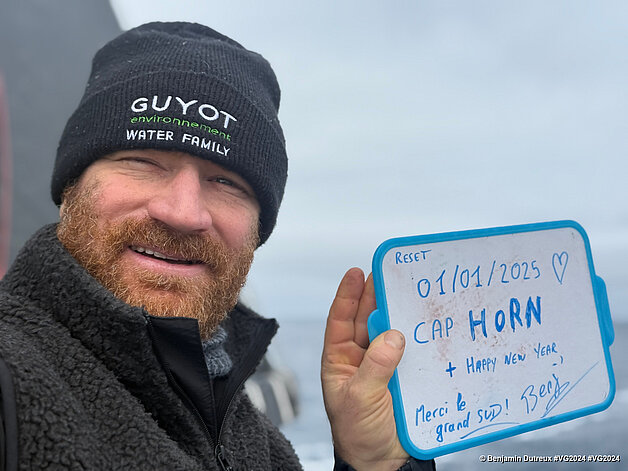 GUYOT
environnement
WATER FAMILY
RESET
01/01/2025 ♡
CAP HORN
+ HAPPY NEW YEAR,
Merci le
grand SUD! Benj
© Benjamin Dutreux #VG2024 #VG2024